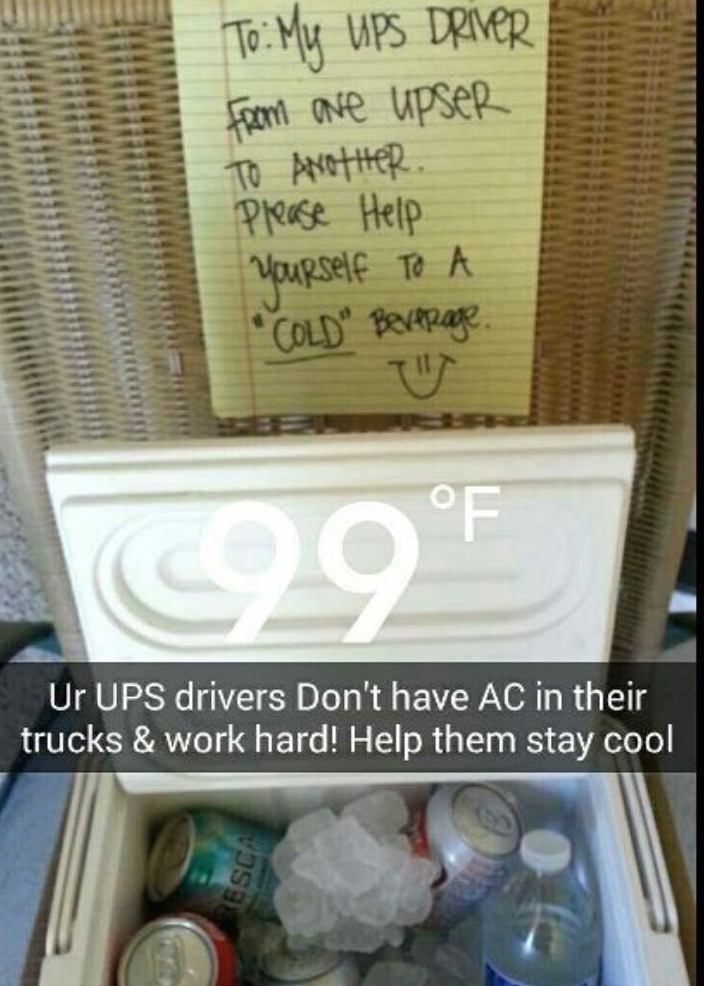 To: My UPS DRIVER
From one UPSER
To Another.
Please Help
Yourself To A
"COLD" Beverage.
99°F
Ur UPS drivers Don't have AC in their
trucks & work hard! Help them stay cool
RESCA